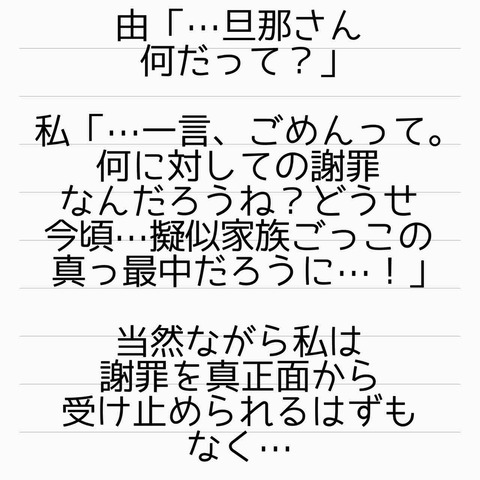 由「…旦那さん
何だって？」
私「…一言、ごめんって。
何に対しての謝罪
なんだろうね？どうせ
今頃…擬似家族ごっこの
真っ最中だろうに…！」
当然ながら私は
謝罪を真正面から
受け止められるはずも
なく…